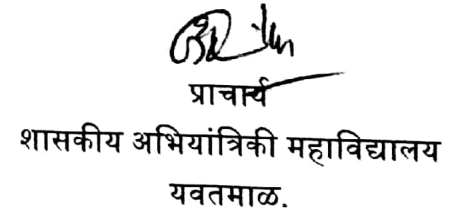 प्राचार्य
शासकीय अभियांत्रिकी महाविद्यालय
यवतमाळ.